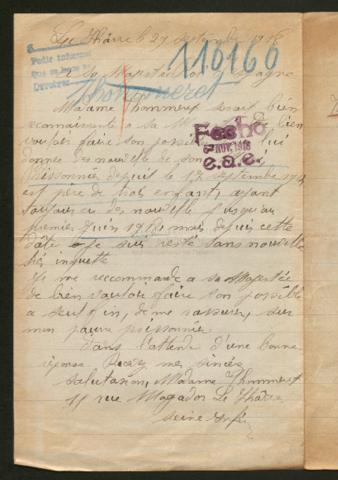 Le Hâvre le 27 Septembre 1918
110160
A Sa Majesté le Roi d'Espagne
Thommeret
Madame Thommeret serait bien
reconnaissante a sa M de bien
vouloir faire son possi lui
donner des nouvelle de son
prisonnier depuis le 12 Septembre 1914
est père de trois enfants, ayant
toujours eu des nouvelle jusqu'au
premier Juin 1918 mais depuis cette
date je suis resté sans nouvelle
très inquiette
Je me recommande a sa Majestée
de bien vouloir faire son possible
a seul fin de me rassurer, sur
mon pauvre prisonnier
Dans l'attente d'une bonne
réponse Recevez mes sincères
salutation, Madame Thommeret
11 rue Mogador Le Hâvre
Seine Infre
Fecho
NOV. 1918
e.a.e.